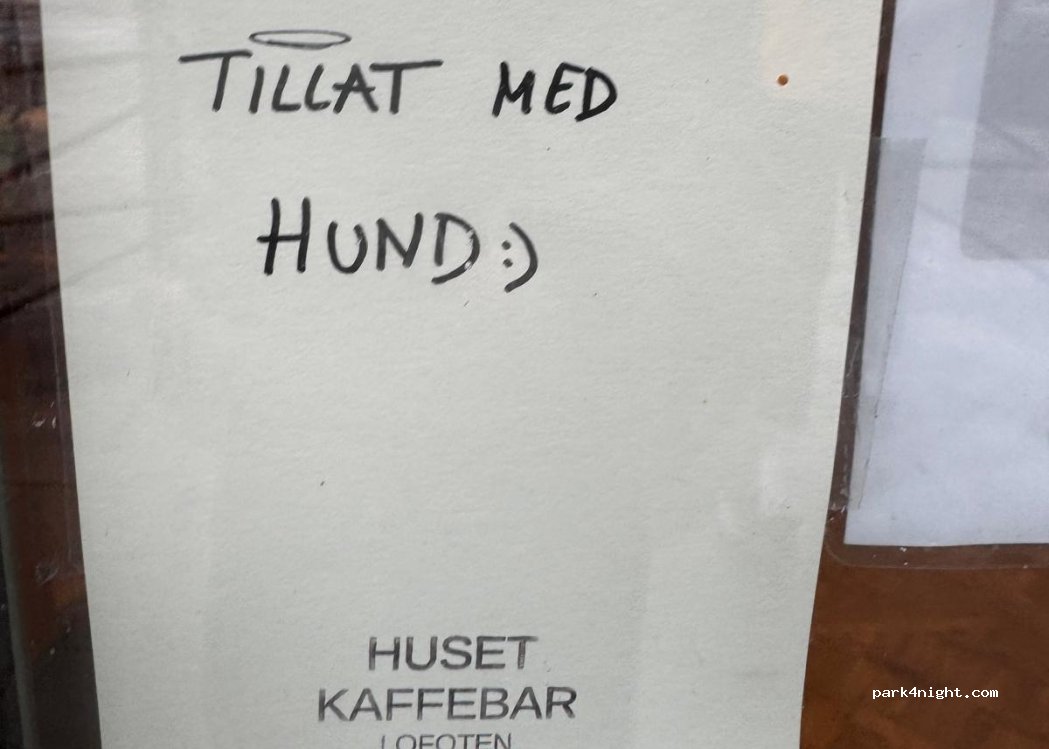 TILLAT MED
HUND :)
HUSET
KAFFEBAR
LOFOTEN
park4night.com